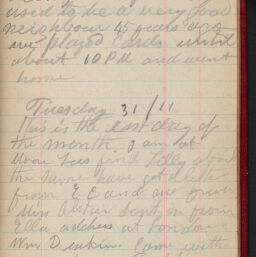 used to be a very good
neighbour 45 years ago
we played cards until
about 10 PM and went
home
Tuesday 31/11
this is the last day of
the month, I am at
find Lilly about
the same have got a letter
from E E and one from
Mrs Alstair sent on from
Ella address at London
Wm Deakin came with